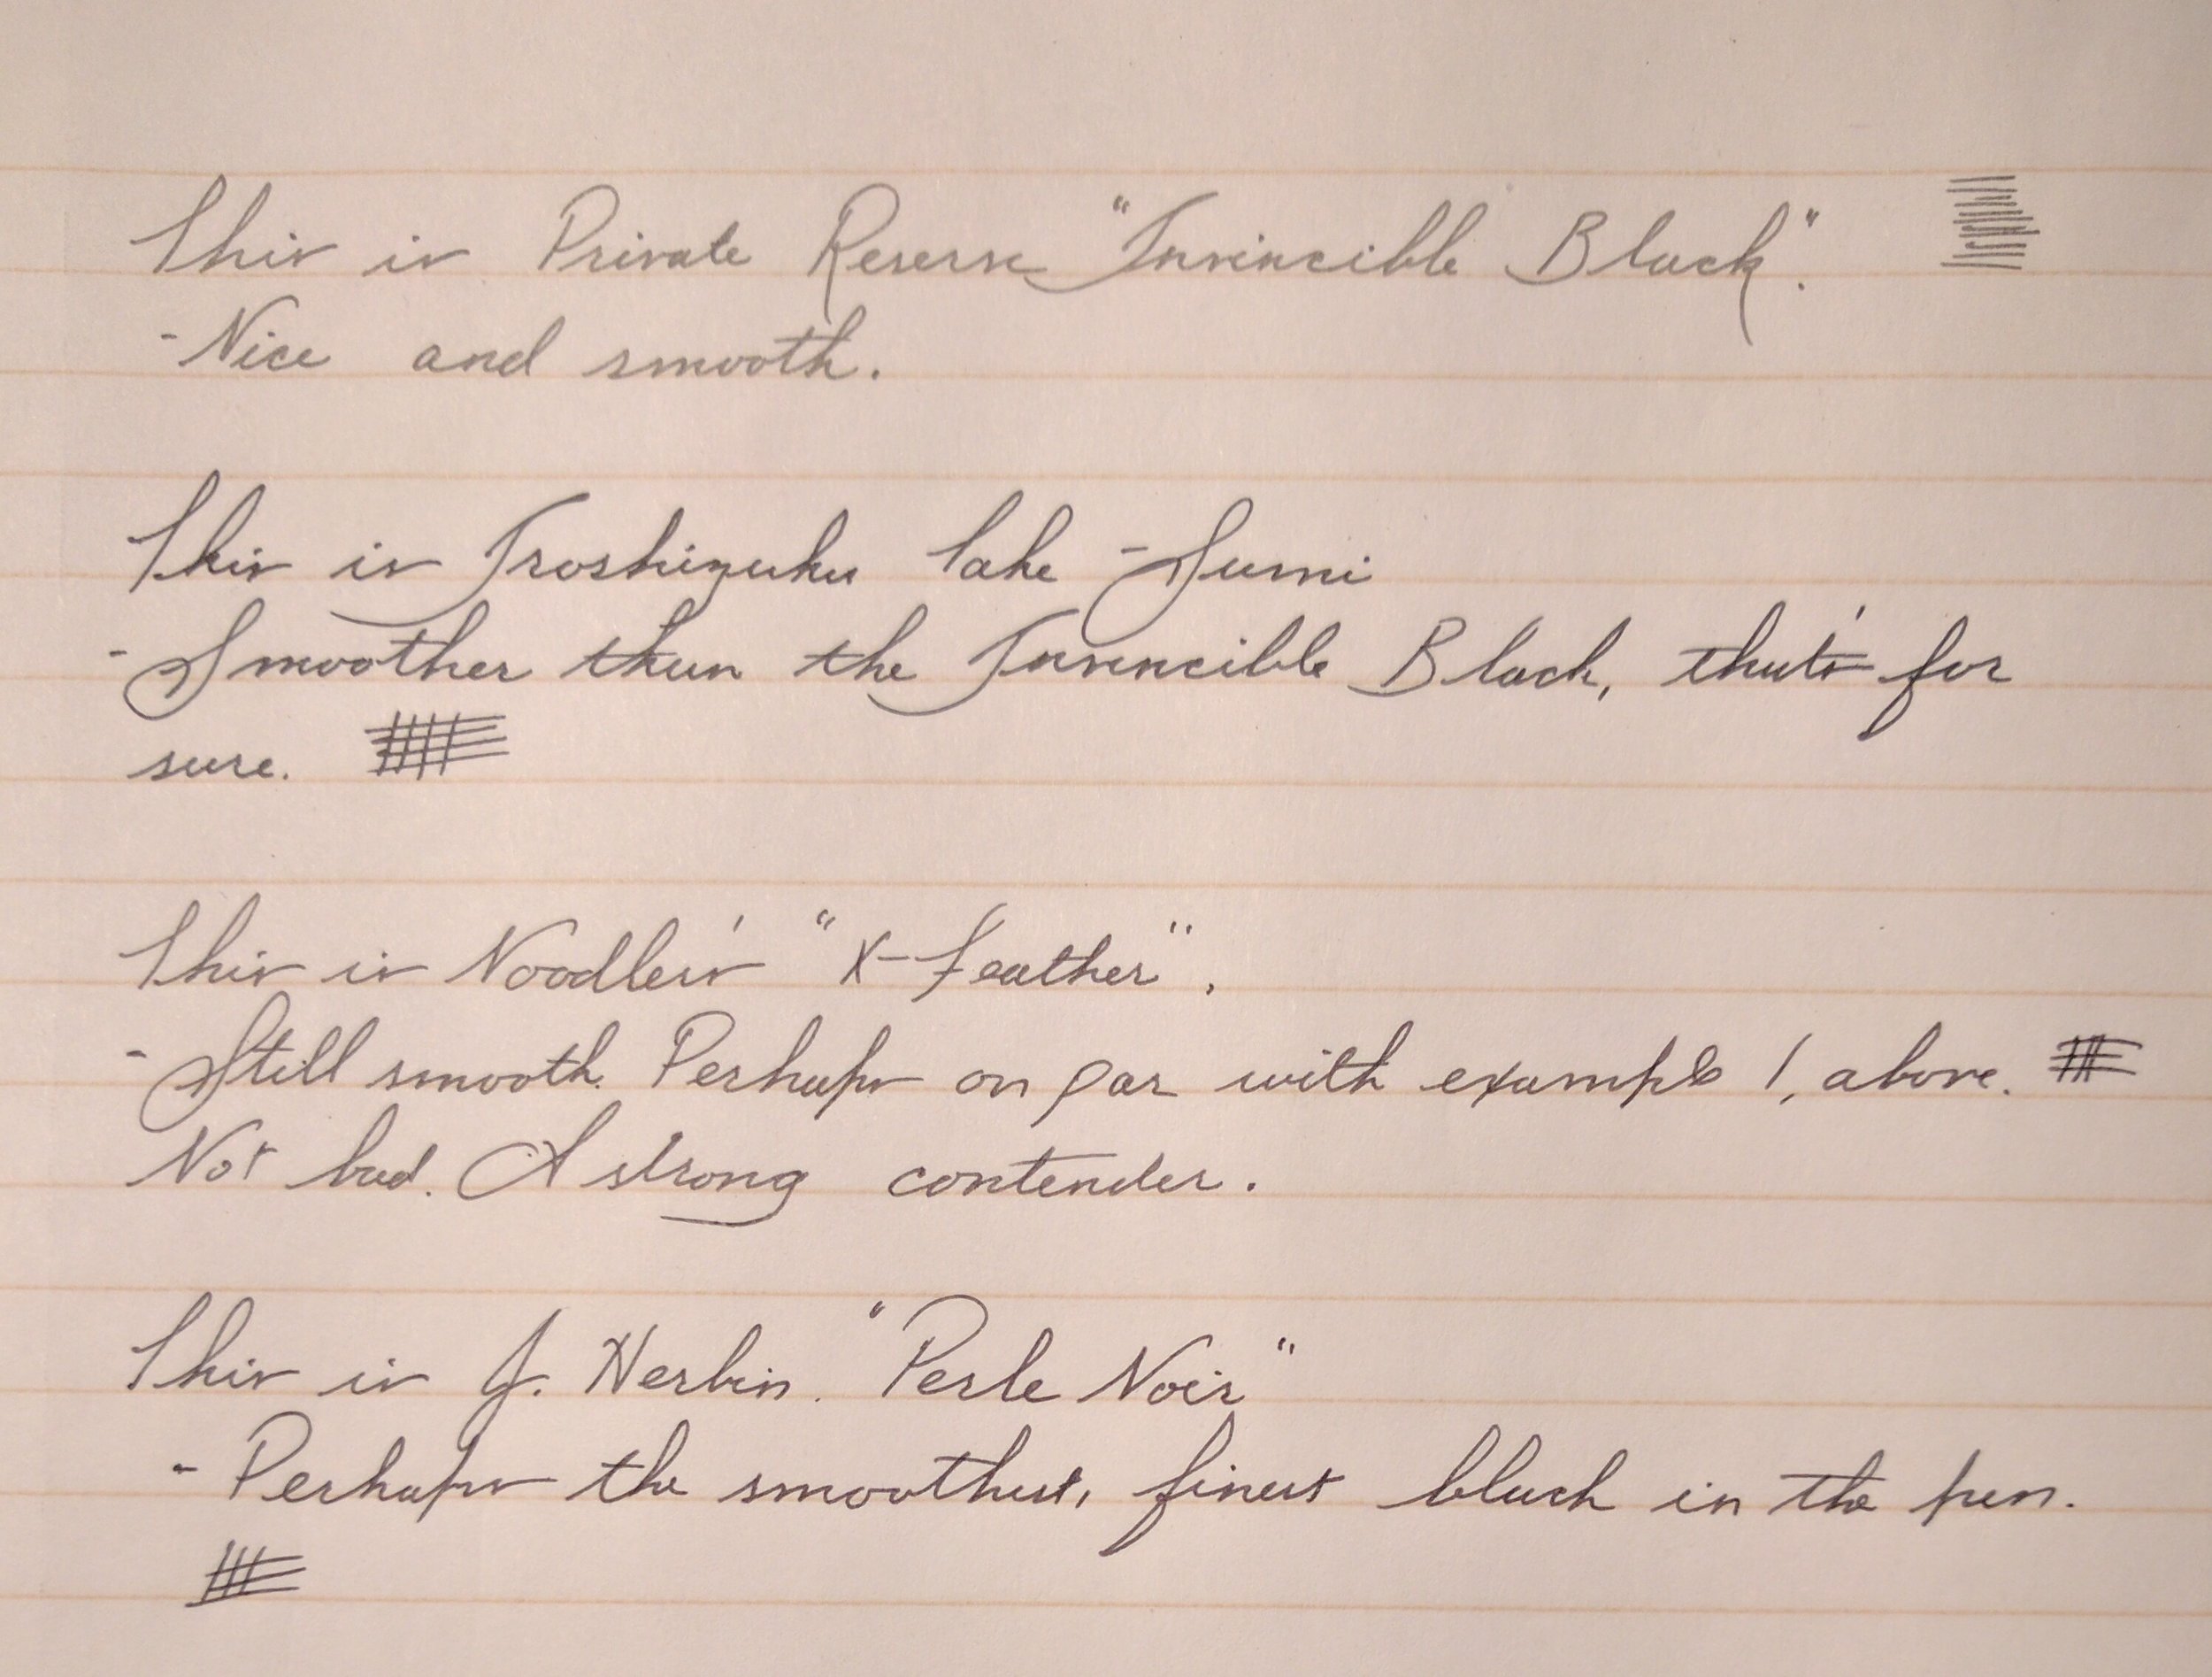 This is Private Reserve "Invincible Black".
- Nice and smooth.
This is Iroshizuku Take-Sumi
- Smoother than the Invincible Black, that's for
sure.
This is Noodler's "X-Feather".
- Still smooth. Perhaps on par with example 1, above.
Not bad. A strong contender.
This is J. Herbin. "Perle Noir"
- Perhaps the smoothest, finest black in the pen.